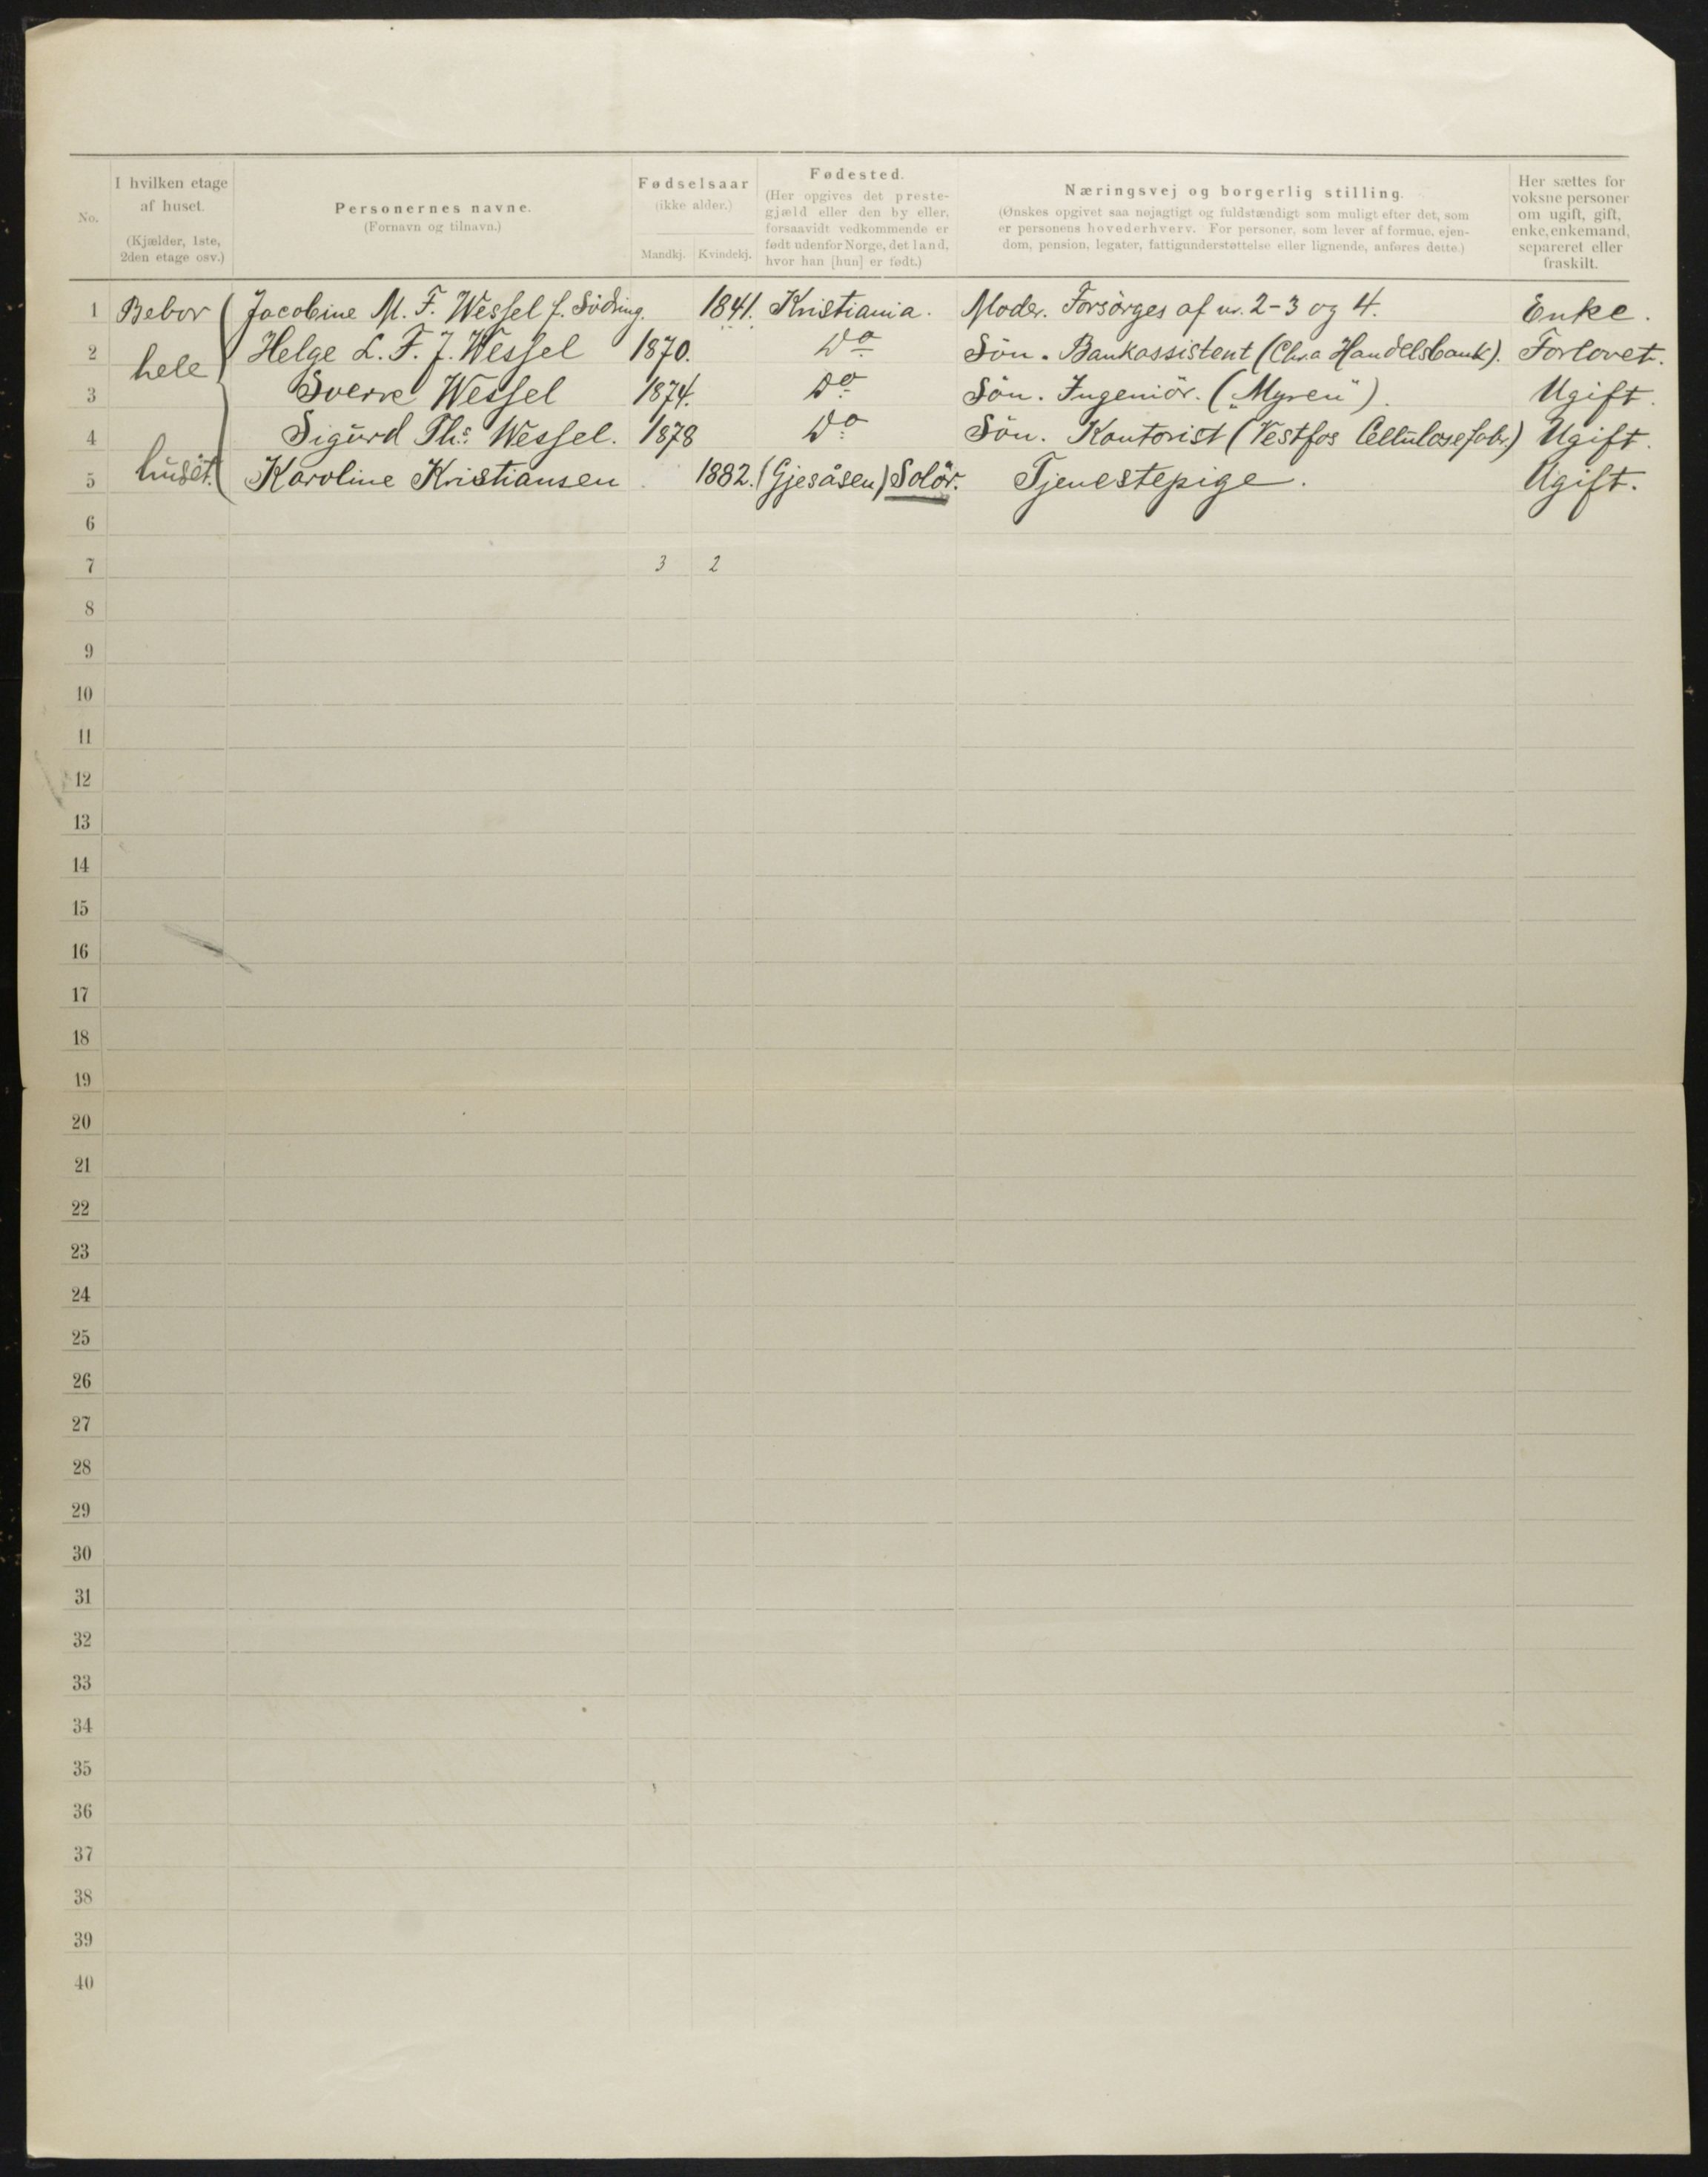 No.
I hvilken etage
af huset.
(Kjælder, 1ste,
2den etage osv.)
Personernes navne.
(Fornavn og tilnavn.)
Fødselsaar
(ikke alder.)
Mandkj. Kvindekj.
Fødested.
(Her opgives det preste-
gjæld eller den by eller,
forsaavidt vedkommende er
født udenfor Norge, det land,
hvor han [hun] er født.)
Næringsvej og borgerlig stilling.
(Ønskes opgivet saa nøjagtigt og fuldstændigt som muligt efter det, som
er personens hovederhverv. For personer, som lever af formue, ejen-
dom, pension, legater, fattigunderstøttelse eller lignende, anføres dette.)
Her sættes for
voksne personer
om ugift, gift,
enke, enkemand,
separeret eller
fraskilt.
1 Bebor Jacobine M. F. Wessel f. Södring. 1841. Kristiania. Moder. Forsörges af nr. 2-3 og 4. Enke.
2 hele Helge L. F. J. Wessel 1870. Do Sön. Bankassistent (Chr.a Handelsbank). Forlovet.
3 Sverre Wessel 1874. Do Sön. Ingeniör. („Myren"). Ugift.
4 Sigurd Ths. Wessel. 1878 Do Sön. Kontorist (Vestfos Cellulosefabr.) Ugift.
5 huset. Karoline Kristiansen 1882. (Gjesåsen) Solör. Tjenestepige. Ugift.
6
7 3 2
8
9
10
11
12
13
14
15
16
17
18
19
20
21
22
23
24
25
26
27
28
29
30
31
32
33
34
35
36
37
38
39
40